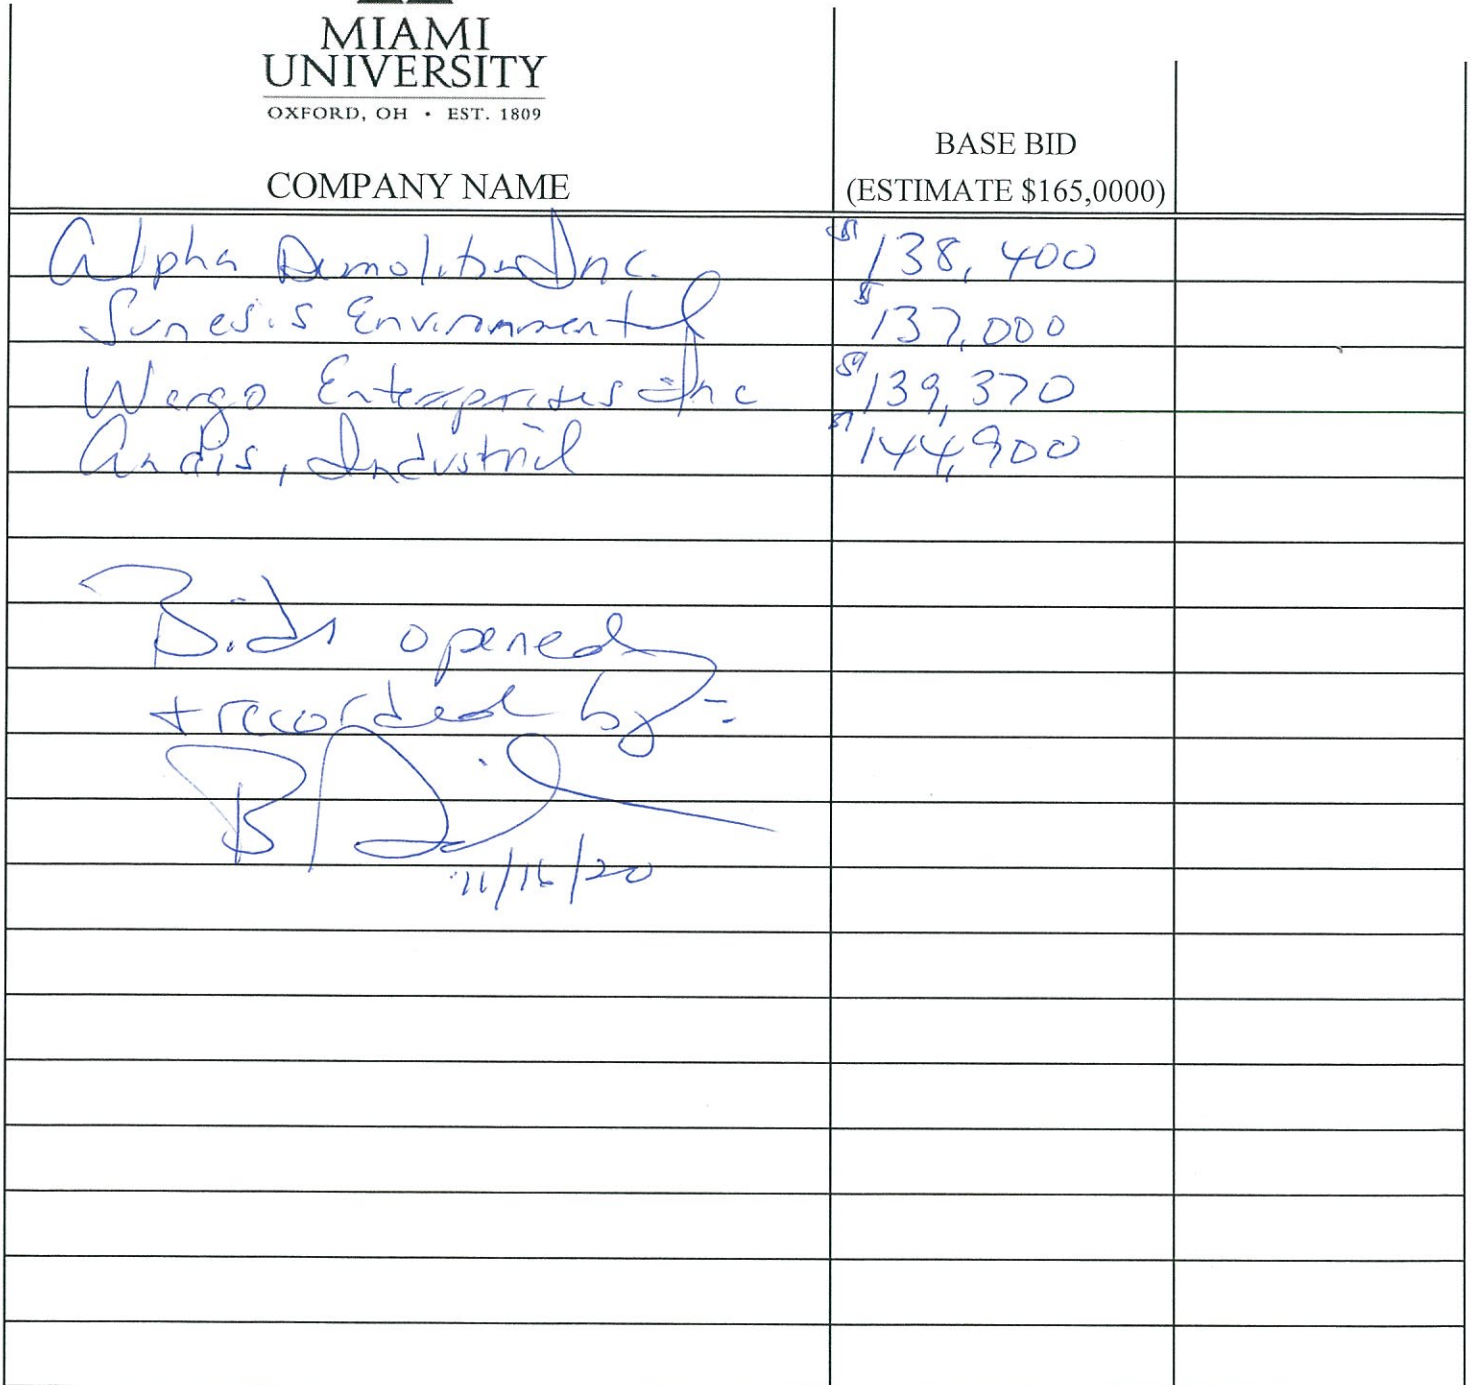 MIAMI
UNIVERSITY
OXFORD, OH • EST. 1809
BASE BID
COMPANY NAME (ESTIMATE $165,0000)
Alpha Demolition Inc. $138,400
Sunesis Environmental $137,000
Wergo Enterprises Inc $139,370
Andis, Industrial $144,900
Bids opened
+ recorded by:
11/16/20